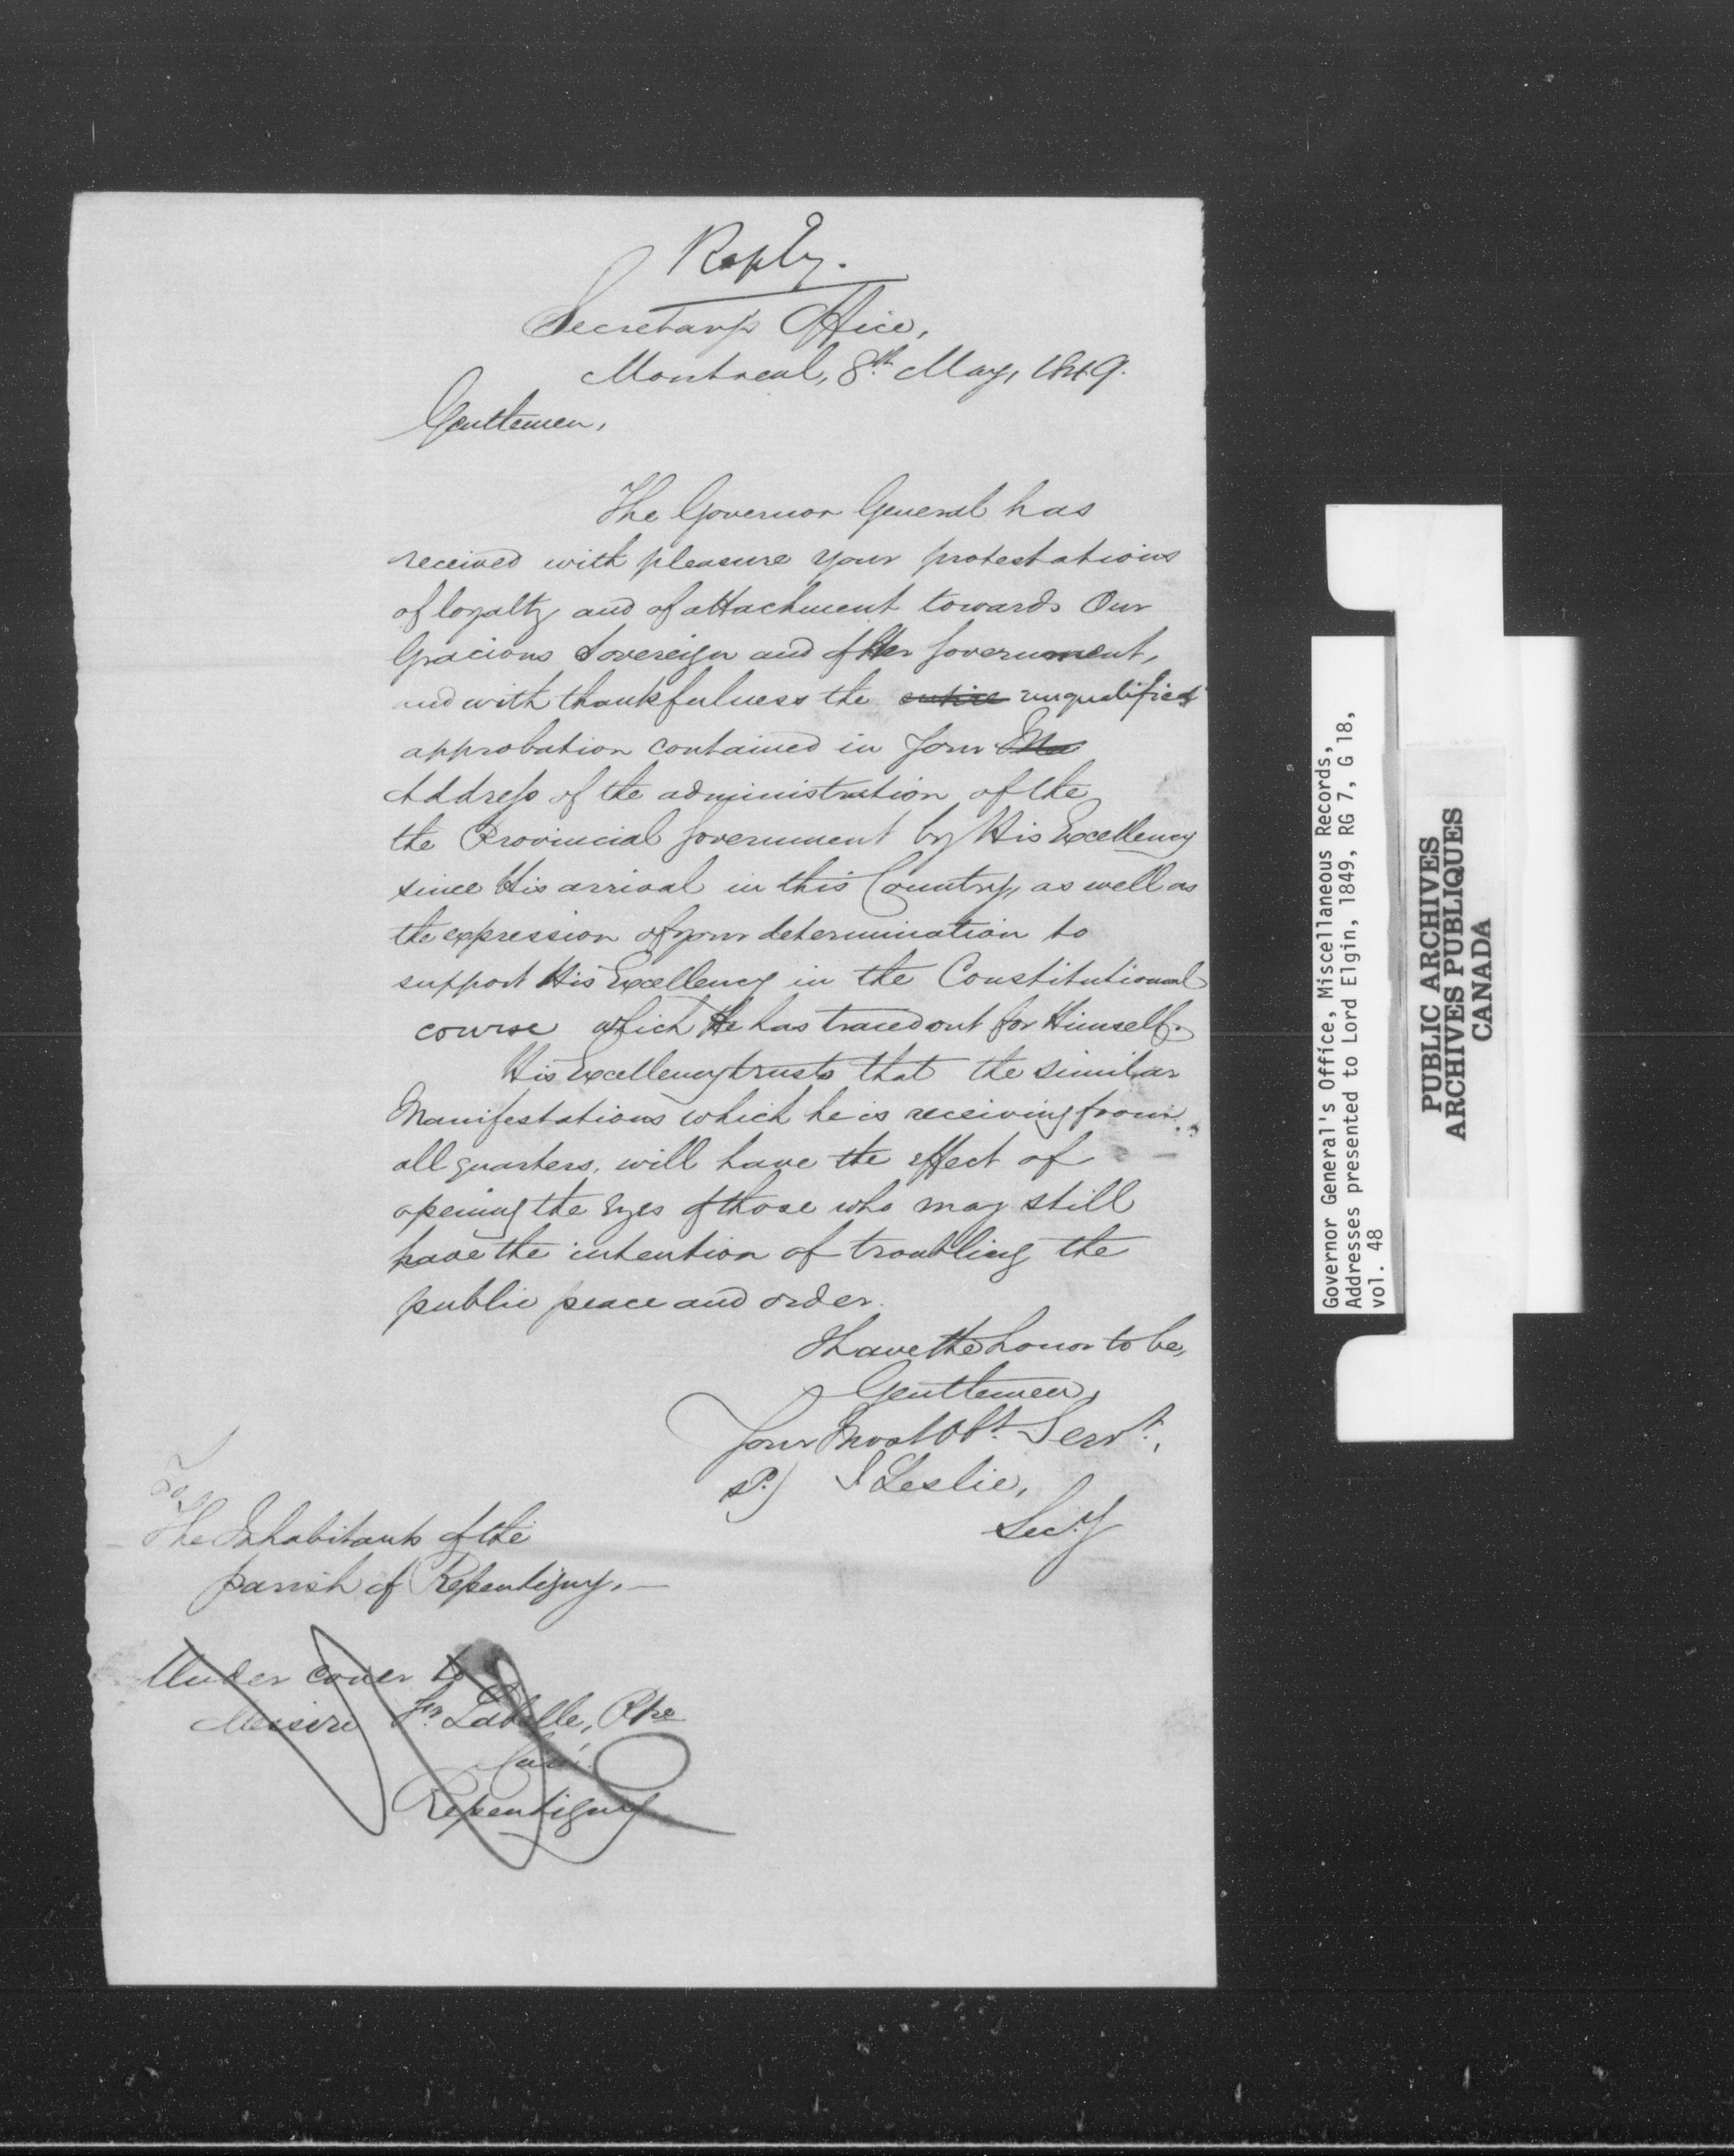 Reply.
Secretary's Office,
Montreal, 8th May, 1849.
Gentlemen,
The Governor General has
received with pleasure your protestations
of loyalty and of attachment towards Our
Gracious Sovereign and of Her Government,
and with thankfulness the entire unqualified
approbation contained in Your
Address of the administration of the
the Provincial Government by His Excellency
since His arrival in this Country, as well as
the expression of your determination to
support His Excellency in the Constitutional
course which He has traced out for Himself.
His Excellency trusts that the similar
Manifestations which he is receiving from
all quarters, will have the effect of
opening the eyes of those who may still
have the intention of troubling the
public peace and order.
I have the honor to be,
Gentlemen,
Your Most Obt. Servt.,
J Leslie,
Secy
To
The Inhabitants of the
parish of Repentigny.—
Under cover to
Messire Labelle, Ptre
Curé
Repentigny
Governor General's Office, Miscellaneous Records,
Addresses presented to Lord Elgin, 1849, RG 7, G 18,
vol. 48
PUBLIC ARCHIVES
ARCHIVES PUBLIQUES
CANADA